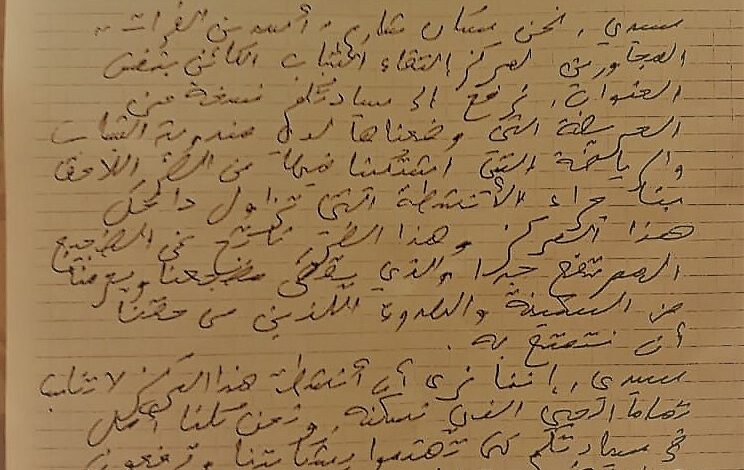 سيدي، نحن سكان شارع "أسد بن الفرات"
المجاورين لمركز التقاء الشباب الكائن بنفس
العنوان، نرفع إلى سيادتكم نسخة من
العريضة التي وضعناها لدى مندوبية الشباب
والرياضة التي اشتكينا فيها من الضرر اللاحق
بنا جراء الأنشطة التي تزاول داخل
هذا المركز وهذا الضرر ناتج عن الضجيج
المرتفع جدا والذي يقض مضجعنا ويحرمنا
من السكينة والهدوء اللذين من حقنا
أن نتمتع به.
سيدي، إننا نرى أن أنشطة هذا المركز لا تناسب
تماما الحي الذي نسكنه، ونحن كلنا أمل
في سيادتكم كي تهتموا بشكايتنا وترفعون